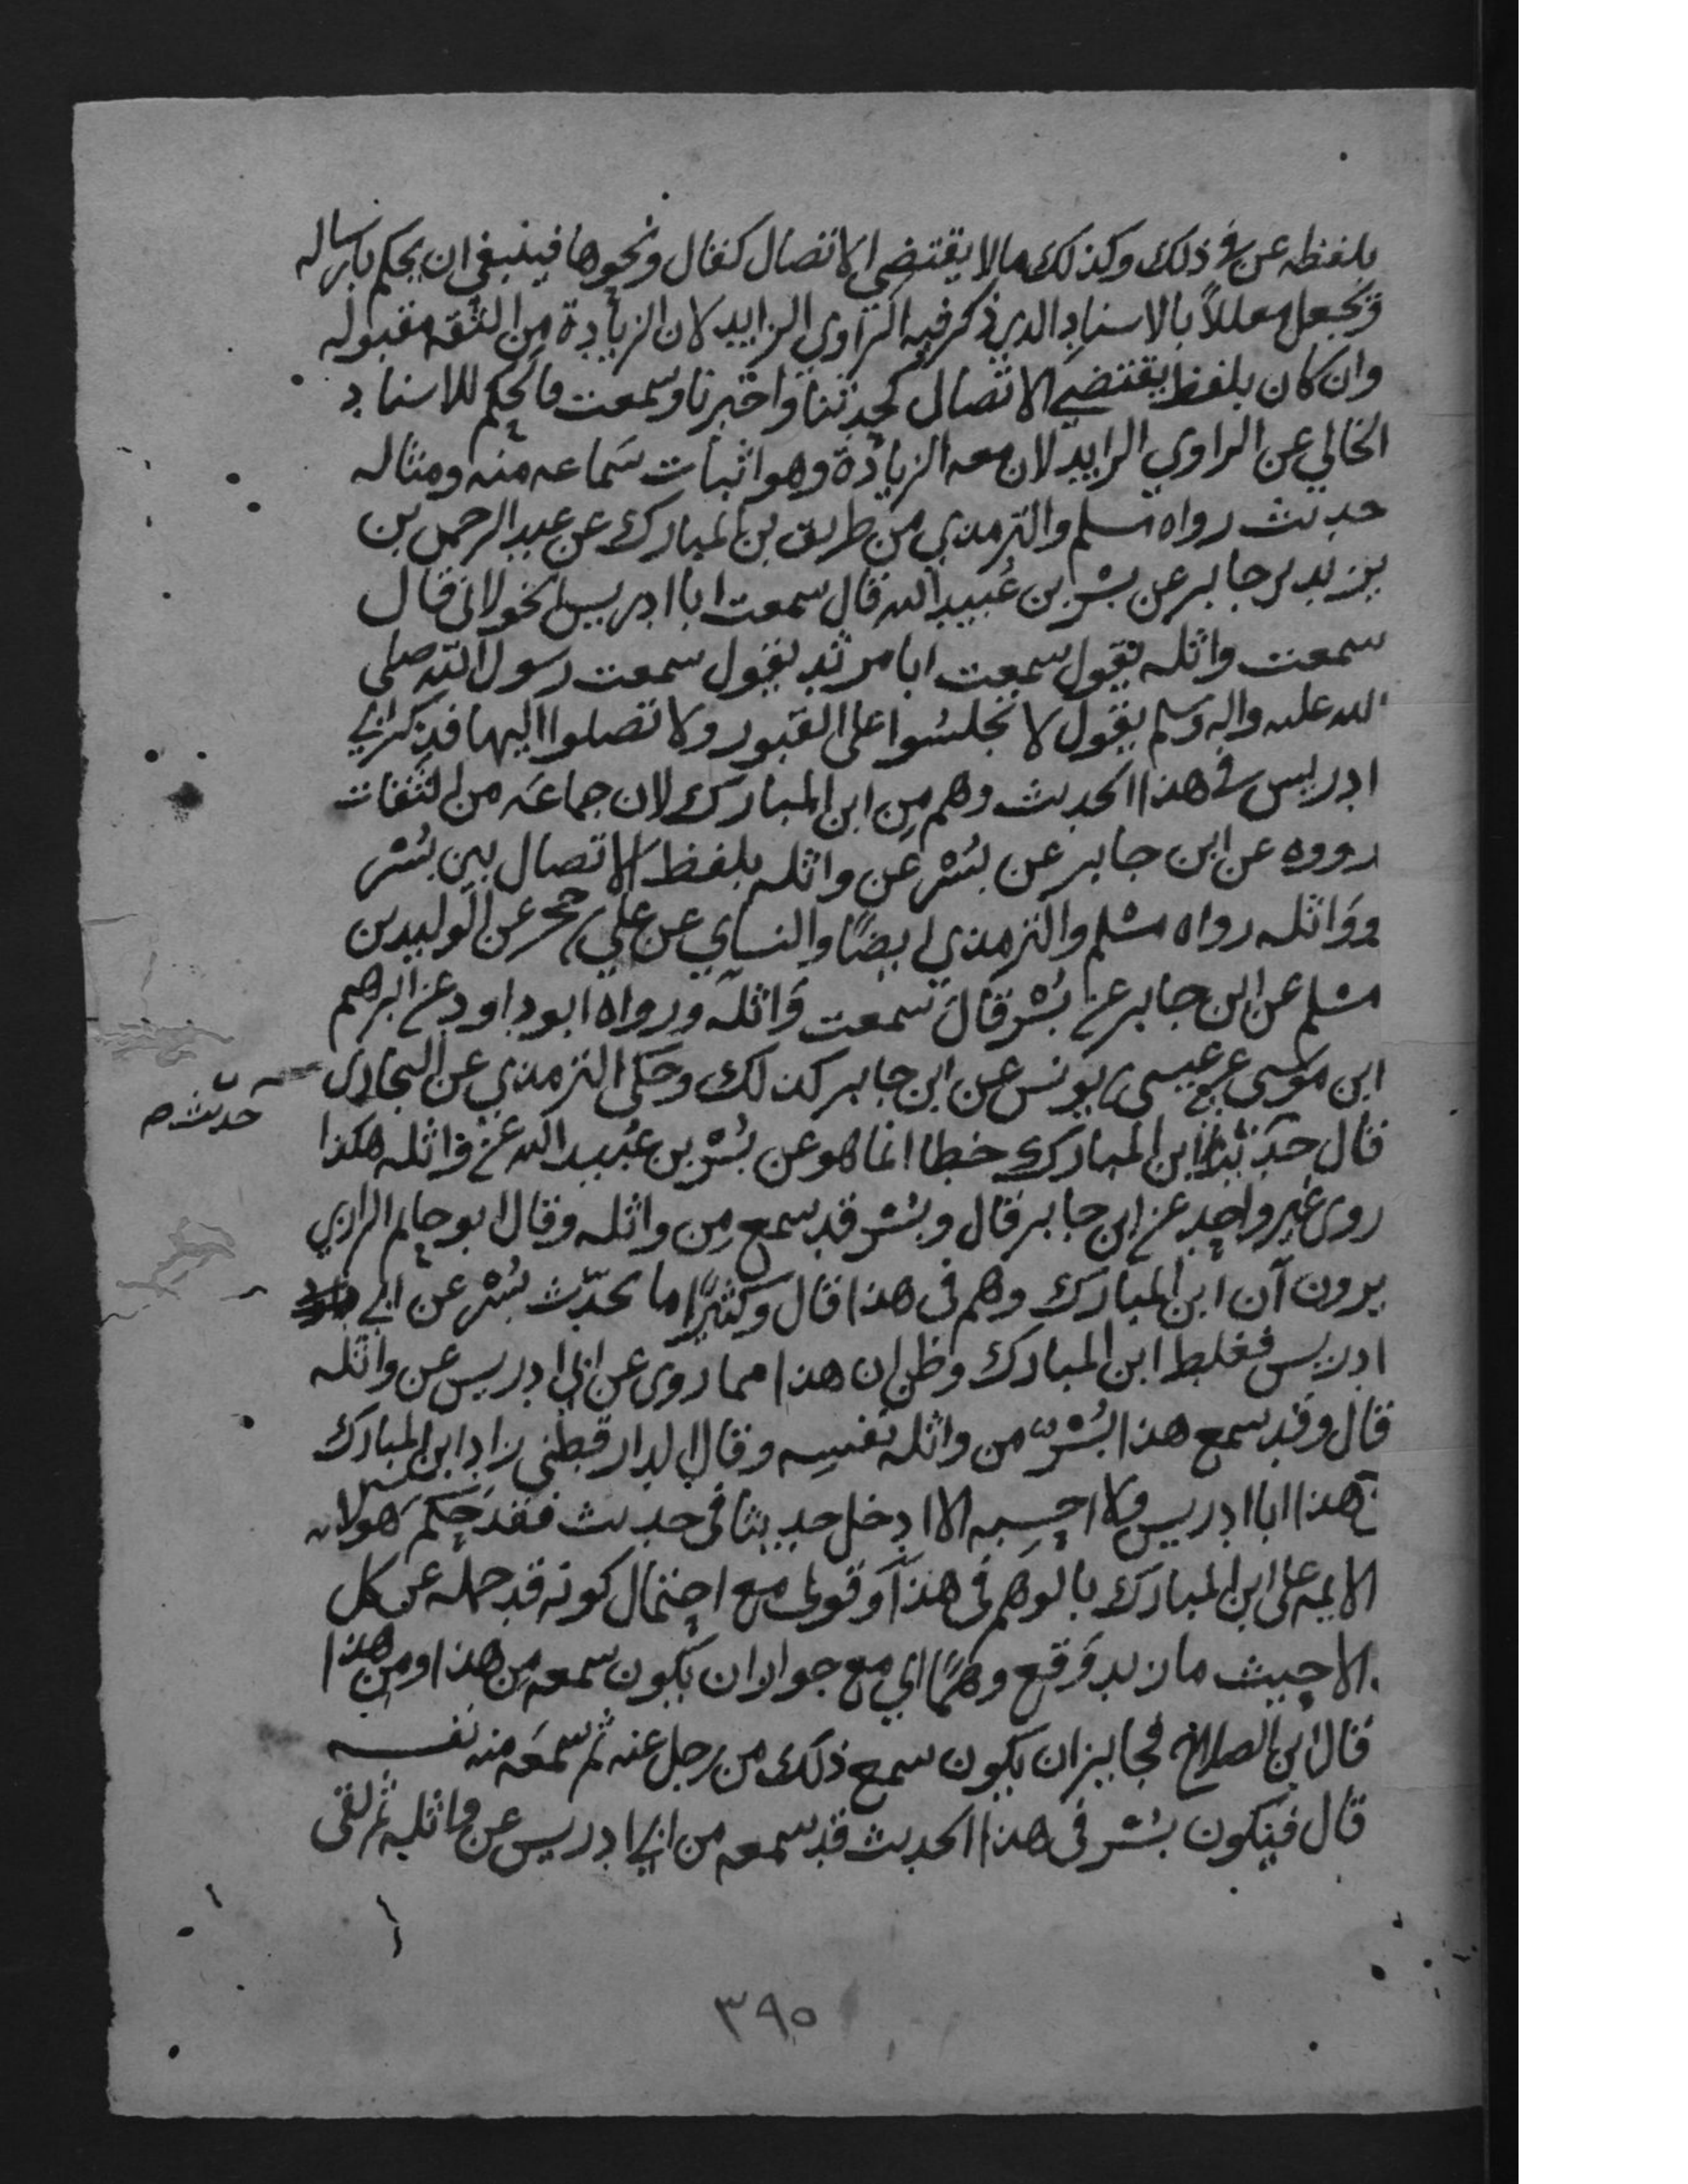 بلفظه عن في ذلك وكذلك مالا يقتضي الاتصال كقال ونحوها فينبغي ان يحكم بارساله
ويجعل معللاً بالاسناد الذي ذكر فيه الراوي الزايد لان الزيادة من الثقه مقبوله
وان كان بلفظ يقتضي الاتصال كحدثنا واخبرنا وسمعت فالحكم للاسناد
الخالي عن الراوي الزايد لان معه الزيادة وهو اثبات سماعه منه ومثاله
حديث رواه مسلم والترمذي من طريق بن المبارك عن عبد الرحمن بن
يزيد بن جابر عن بشر بن عُبيد الله قال سمعت ابا ادريس الخولاني قال
سمعت واثله يقول سمعت ابا مرثد يقول سمعت رسول الله صلى
الله عليه واله وسلم يقول لا تجلسُوا على القبور ولا تصلوا اليها فذكر ابي
ادريس في هذا الحديث وهم مِن ابن المبارك لان جماعَه من الثقات
رووه عن ابن جابر عن بُشر عن واثله بلفظ الاتصال بين بُشر
ووَاثله رواه مسلم والترمذي ايضًا والنساي عن علي بن حجر عن الوليد بن
مسلم عن ابن جابر عن بُشر قال سمعت وَاثله ورواه ابو داود عن ابرهيم
ابن موسى عن عيسى بن يونس عن ابن جابر كذلك وحكى الترمذي عن البخاري
حديث صح
قال حديث ابن المبارك خطا انما هو عن بُشر بن عُبيد الله عن واثله هكذا
روى غير واحد عن ابن جابر قال وبُشر قد سمع مِن واثله وقال ابو حاتم الرازي
يرون ان ابن المبارك وهم في هذا قال وكثيرًا ما يحدّث بُشر عن ابي
ادريس فغلط ابن المبارك وظن ان هذا مما روى عن ابي ادريس عن واثله
قال وقد سمع هذا بُشرٌ من واثله نفسِه وقال الدارقطني زاد ابن المبارك
في هذا ابا ادريس ولا احسبه الا ادخل حديثا في حديث فقد حكم هولاء
الايمه على ابن المبارك بالوهم في هذا وقولى مع احتمال كونه قد حمله عن كل
الا حيث ما زيد وَقع وهمًا اي مع جواز ان يكون سمعه مِن هذا ومِن هذا
قال ابن الصلاح فجايز ان يكون سمع ذلك من رجل عنه ثم سمعَه منه نفسه
قال فيكون بُشر في هذا الحديث قد سمعه من ابي ادريس عن واثله ثم لقى
٣٩٥